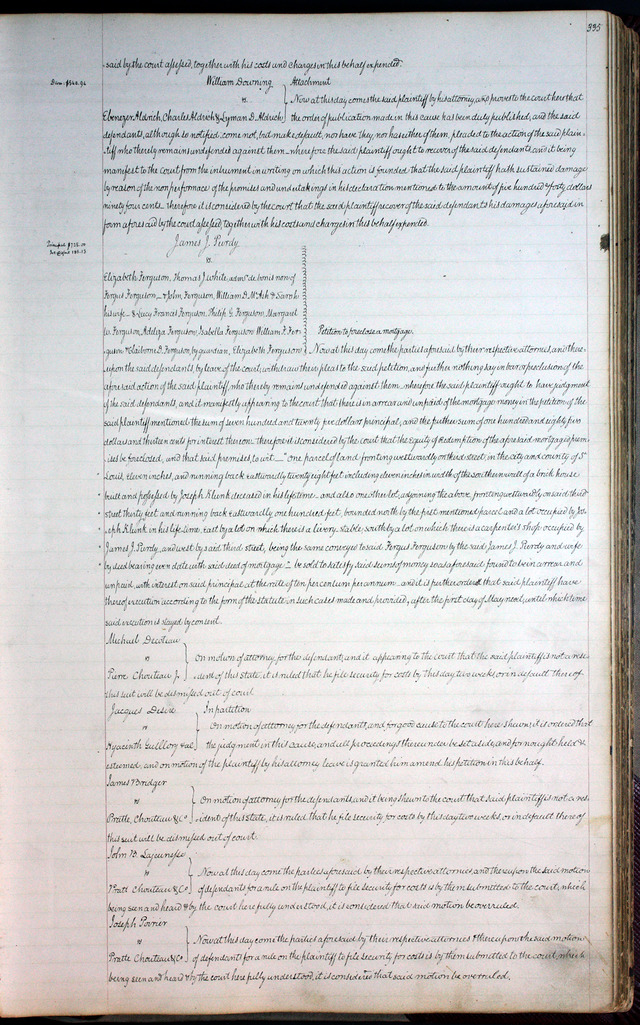 335
said by the court assessed, together with his costs and charges in this behalf expended.
Dam. $540.94
William Downing
vs
Ebenezer Aldrich, Charles Aldrich & Lyman D. Aldrich
Attachment
Now at this day comes the said plaintiff by his attorney, and proves to the court here that
the order of publication made in this cause has been duly published, and the said
defendants, although so notified, come not, but make default, nor have they, nor has either of them, pleaded to the action of the said plain-
tiff who thereby remains undefended against them wherefore the said plaintiff ought to recover of the said defendants, and it being
manifest to the court from the instrument in writing on which this action is founded that the said plaintiff hath sustained damage
by reason of the nonperformance of the promises and undertakings in his declaration mentioned to the amount of five hundred & forty dollars
ninety four cents. Therefore it is considered by the court that the said plaintiff recover of the said defendants his damages aforesaid in
form aforesaid by the court assessed, together with his costs and charges in this behalf expended.
James J. Purdy
vs
Elizabeth Ferguson, Thomas J. White adm's de bonis non of
Fergus Ferguson, & John Ferguson, William D. & Sarah
his wife & Lucy Frances Ferguson, Philip G. Ferguson, Margaret
W. Ferguson, Ferguson, Isabella Ferguson William F. Fer-
guson & Claiborne D. Ferguson, by guardian, Elizabeth Ferguson
Petition to foreclose a mortgage.
Now at this day come the parties aforesaid by their respective attornies, and there-
upon the said defendants, by leave of the court, withdraw their pleas to the said petition, and further nothing say in bar or preclusion of the
aforesaid action of the said plaintiff, who thereby remains undefended against them wherefore the said plaintiff ought to have judgment
of the said defendants, and it manifestly appearing to the court that there is in arrear and unpaid of the mortgage money in the petition of the
said plaintiff mentioned the sum of seven hundred and twenty five dollars principal, and the further sum of one hundred and eighty five
dollars and thirteen cents for interest thereon therefore it is considered by the court that the Equity of Redemption of the aforesaid mortgaged prem-
ises be foreclosed, and that said premises to wit "One parcel of land fronting westwardly on third street, in the city and county of St
Louis, eleven inches, and running back eastwardly twenty eight feet including eleven inches in width of the southern wall of a brick house
" built and possessed by Joseph Klunk deceased in his lifetime and also one other lot, adjoining the above, fronting westwardly on said third
" street thirty feet and running back eastwardly one hundred feet, bounded north by the first mentioned parcel and a lot occupied by Jos-
" eph Klunk in his life time, East by a lot on which there is a livery stable, south by a lot on which there is a carpenter's shop occupied by
" James J. Purdy, and west by said third street, being the same conveyed to said Fergus Ferguson by the said James J. Purdy and wife
" by deed bearing even date with said deed of mortgage" be sold to satisfy said sums of money so as aforesaid found to be in arrear and
unpaid, with interest on said principal at the rate of ten per centum per annum and it is further ordered that said plaintiff have
thereof execution according to the form of the statute in such cases made and provided, after the first day of May next, until which time
said execution is stayed by consent.
Michael Decoteau
vs
Pierre Chouteau J.
On motion of attorney for the defendant, and it appearing to the court that the said plaintiff is not a resi-
dent of this State, it is ruled that he file security for costs by this day two weeks, or in default thereof
this suit will be dismissed out of court.
Jacques Desire
vs
Hyacinth Guillory & al
In partition
On motion of attorney for the defendants, and for good cause to the court here shewn, it is ordered that
the judgment in this cause, and all proceedings thereunder be set aside, and for nought held &
esteemed, and on motion of the plaintiff by his attorney leave is granted him amend his petition in this behalf.
James Bridger
vs
Pratte Chouteau & Co
On motion of attorney for the defendants, and it being shewn to the court that said plaintiff is not a res-
ident of this State, it is ruled that he file security for costs by this day two weeks, or in default thereof
this suit will be dismissed out of court.
John B. Lajeunesse
vs
Pratt Chouteau & Co
Now at this day come the parties aforesaid by their respective attornies, and thereupon the said motion
of defendants for a rule on the plaintiff to file security for costs is by them submitted to the court, which
being seen and heard & by the court here fully understood, it is considered that said motion be overruled.
Joseph Poirier
vs
Pratte Chouteau & Co
Now at this day come the parties aforesaid by their respective attornies & thereupon the said motion
of defendants for a rule on the plaintiff to file security for costs is by them submitted to the court, which
being seen and heard & by the court here fully understood, it is considered that said motion be overruled.